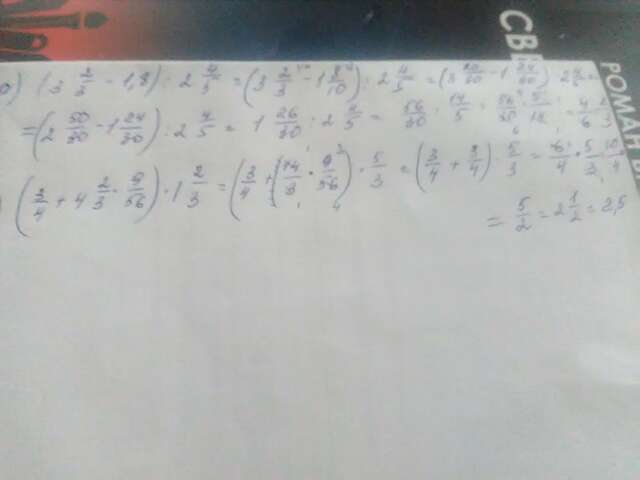 СВ
РОМАН
(3 2/3 - 1,8) : 2 4/5 = (3 2/3 - 1 8/10) : 2 4/5 = (3 20/30 - 1 24/30) 2 4/5 =
= (2 50/30 - 1 24/30) : 2 4/5 = 1 26/30 : 2 4/5 = 56/30 : 14/5 = 56/30 · 5/14 =
(3/4 + 4 2/3 · 9/56) · 1 2/3 = (3/4 + (14/3 · 9/56) · 5/3 = (3/4 + 3/4) · 5/3 = 6/4 · 5/3
= 5/2 = 2 1/2 = 2,5